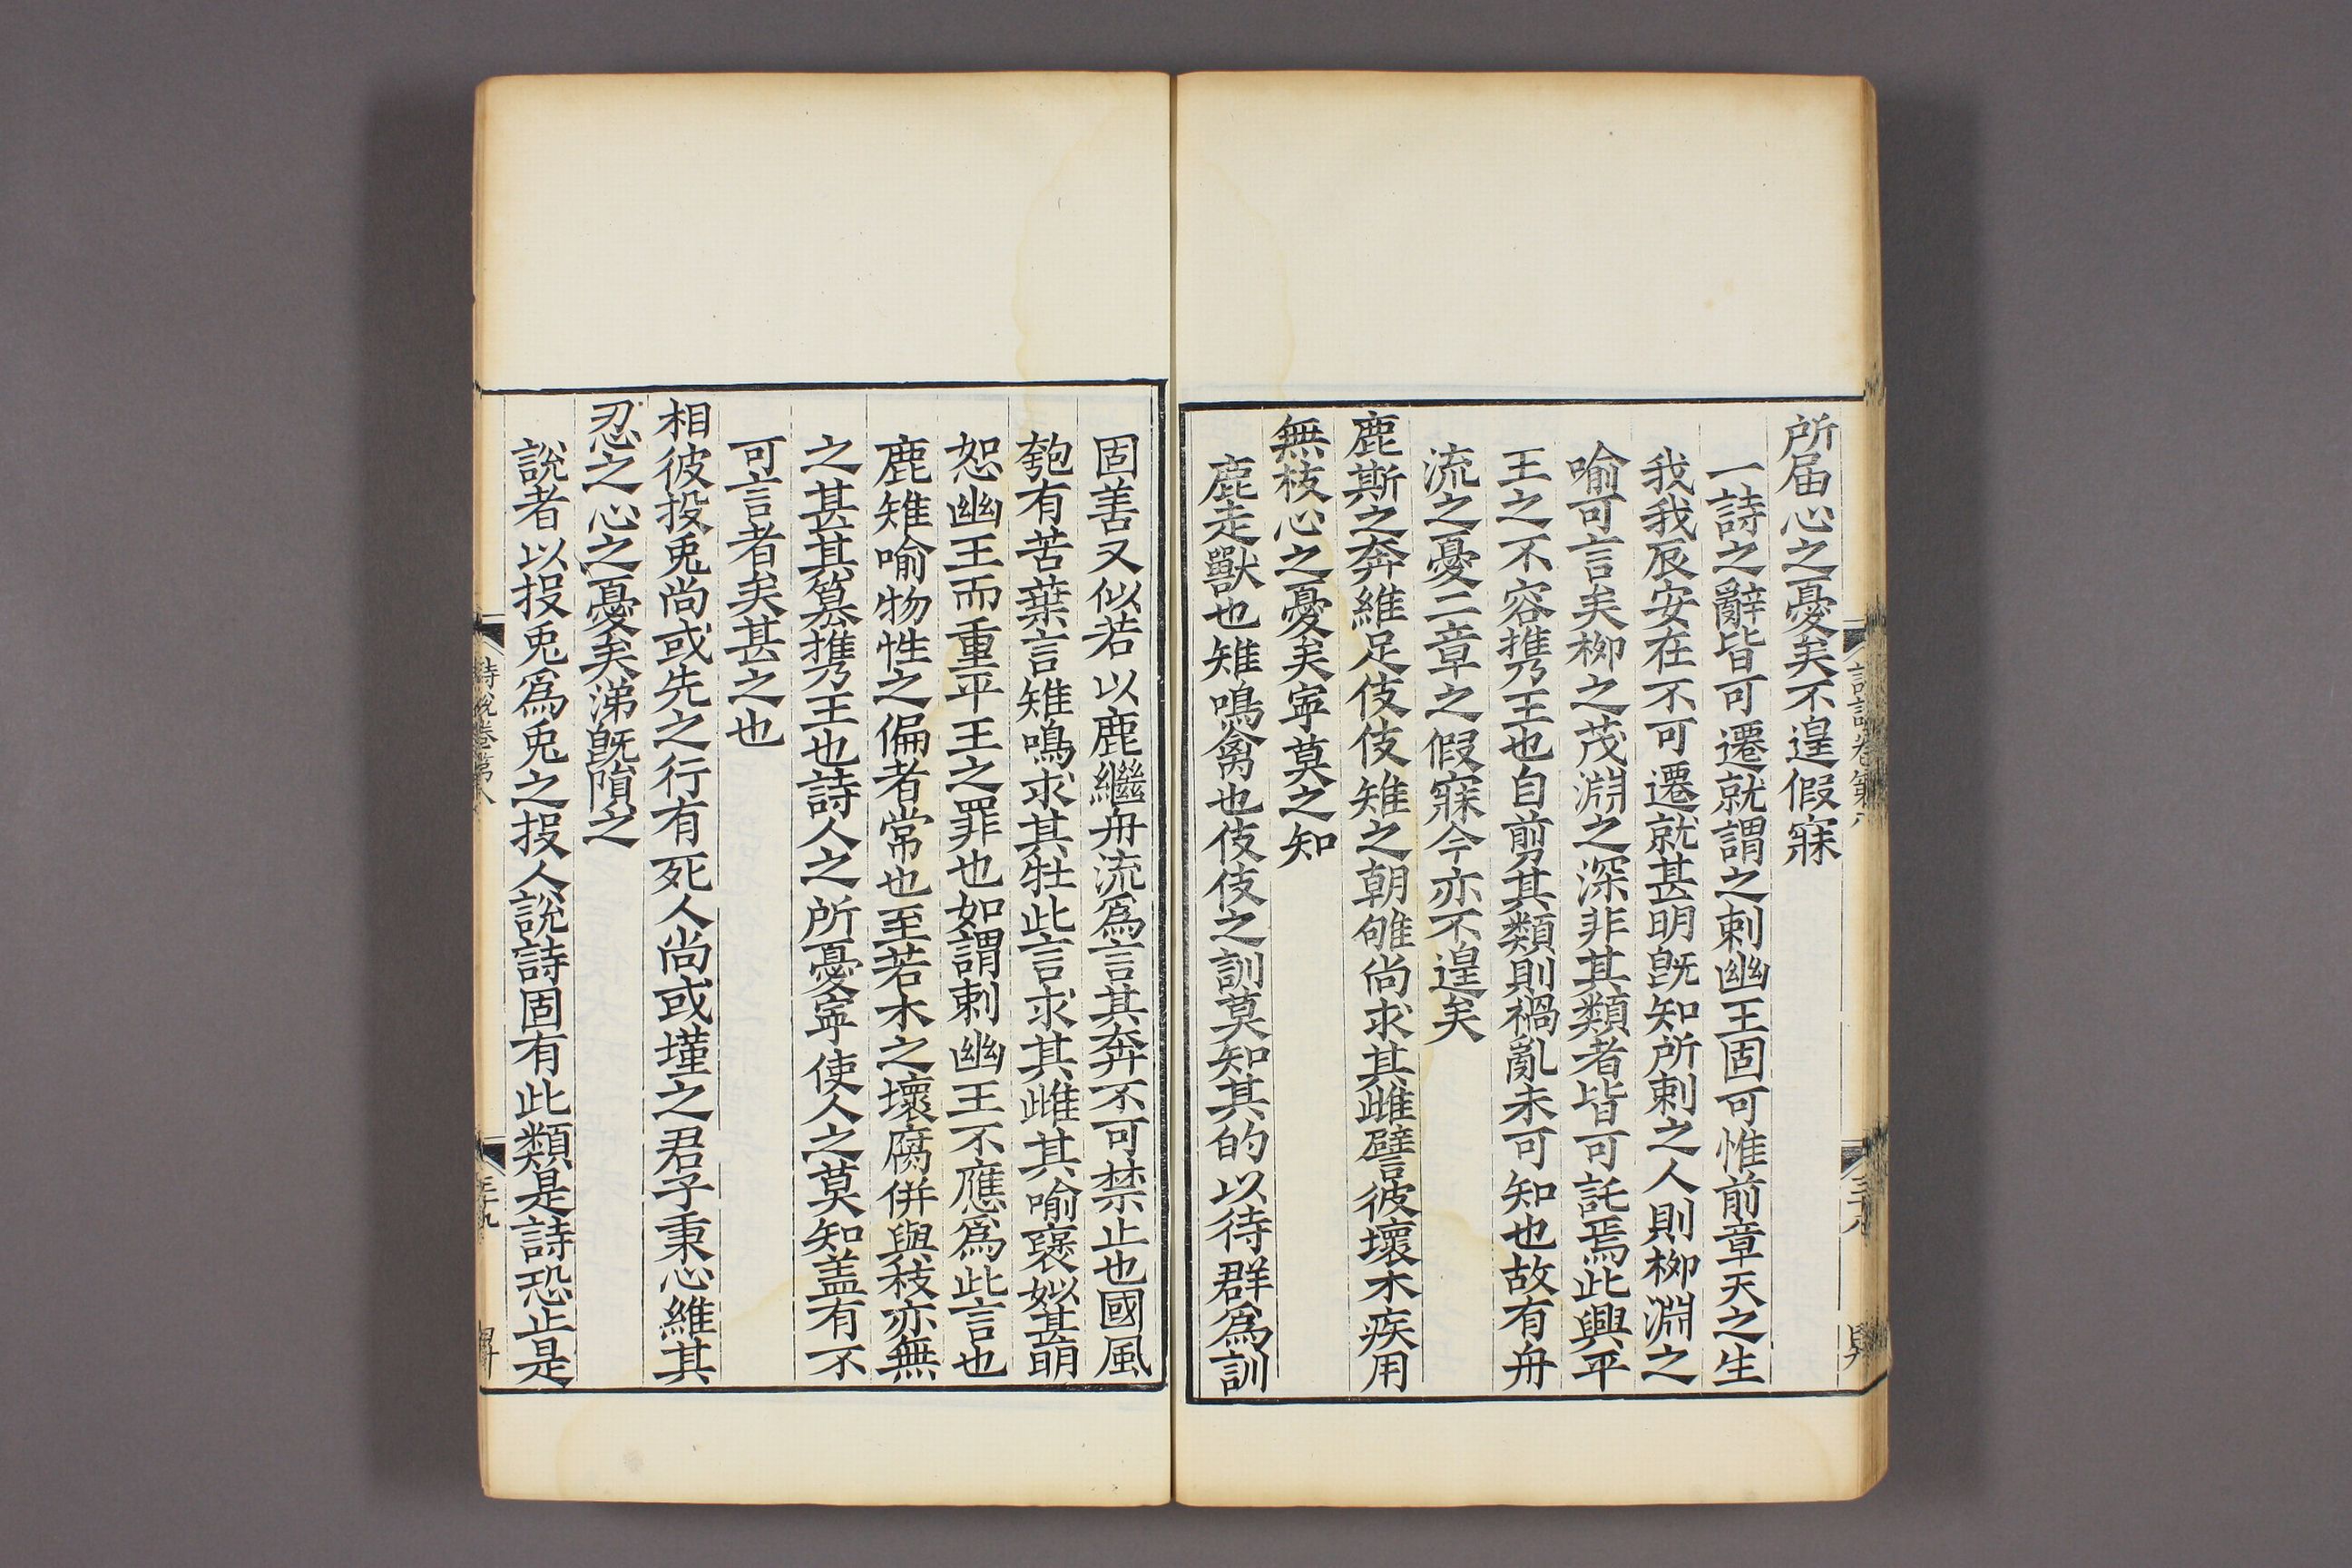 所届心之憂矣不遑假寐
一詩之辭皆可遷就謂之刺幽王固可惟前章天之生
我我辰安在不可遷就甚明旣知所刺之人則柳淵之
喻可言矣柳之茂淵之深非其類者皆可託焉此興平
王之不容携王也自剪其類則禍亂未可知也故有舟
流之憂二章之假寐今亦不遑矣
鹿斯之奔維足伎伎雉之朝雊尚求其雌譬彼壞木疾用
無枝心之憂矣寧莫之知
鹿走獸也雉鳴禽也伎伎之訓莫知其的以待群爲訓
固善又似若以鹿繼舟流爲言其奔不可禁止也國風
匏有苦葉言雉鳴求其牡此言求其雌其喻褒姒甚明
恕幽王而重平王之罪也如謂刺幽王不應爲此言也
鹿雉喻物性之偏者常也至若木之壞腐併與枝亦無
之甚其簒携王也詩人之所憂寧使人之莫知盖有不
可言者矣甚之也
相彼投兎尚或先之行有死人尚或墐之君子秉心維其
忍之心之憂矣涕旣隕之
說者以投兎爲兎之投人說詩固有此類是詩恐止是
詩說卷第八
三十八
詩說卷第八
三十九